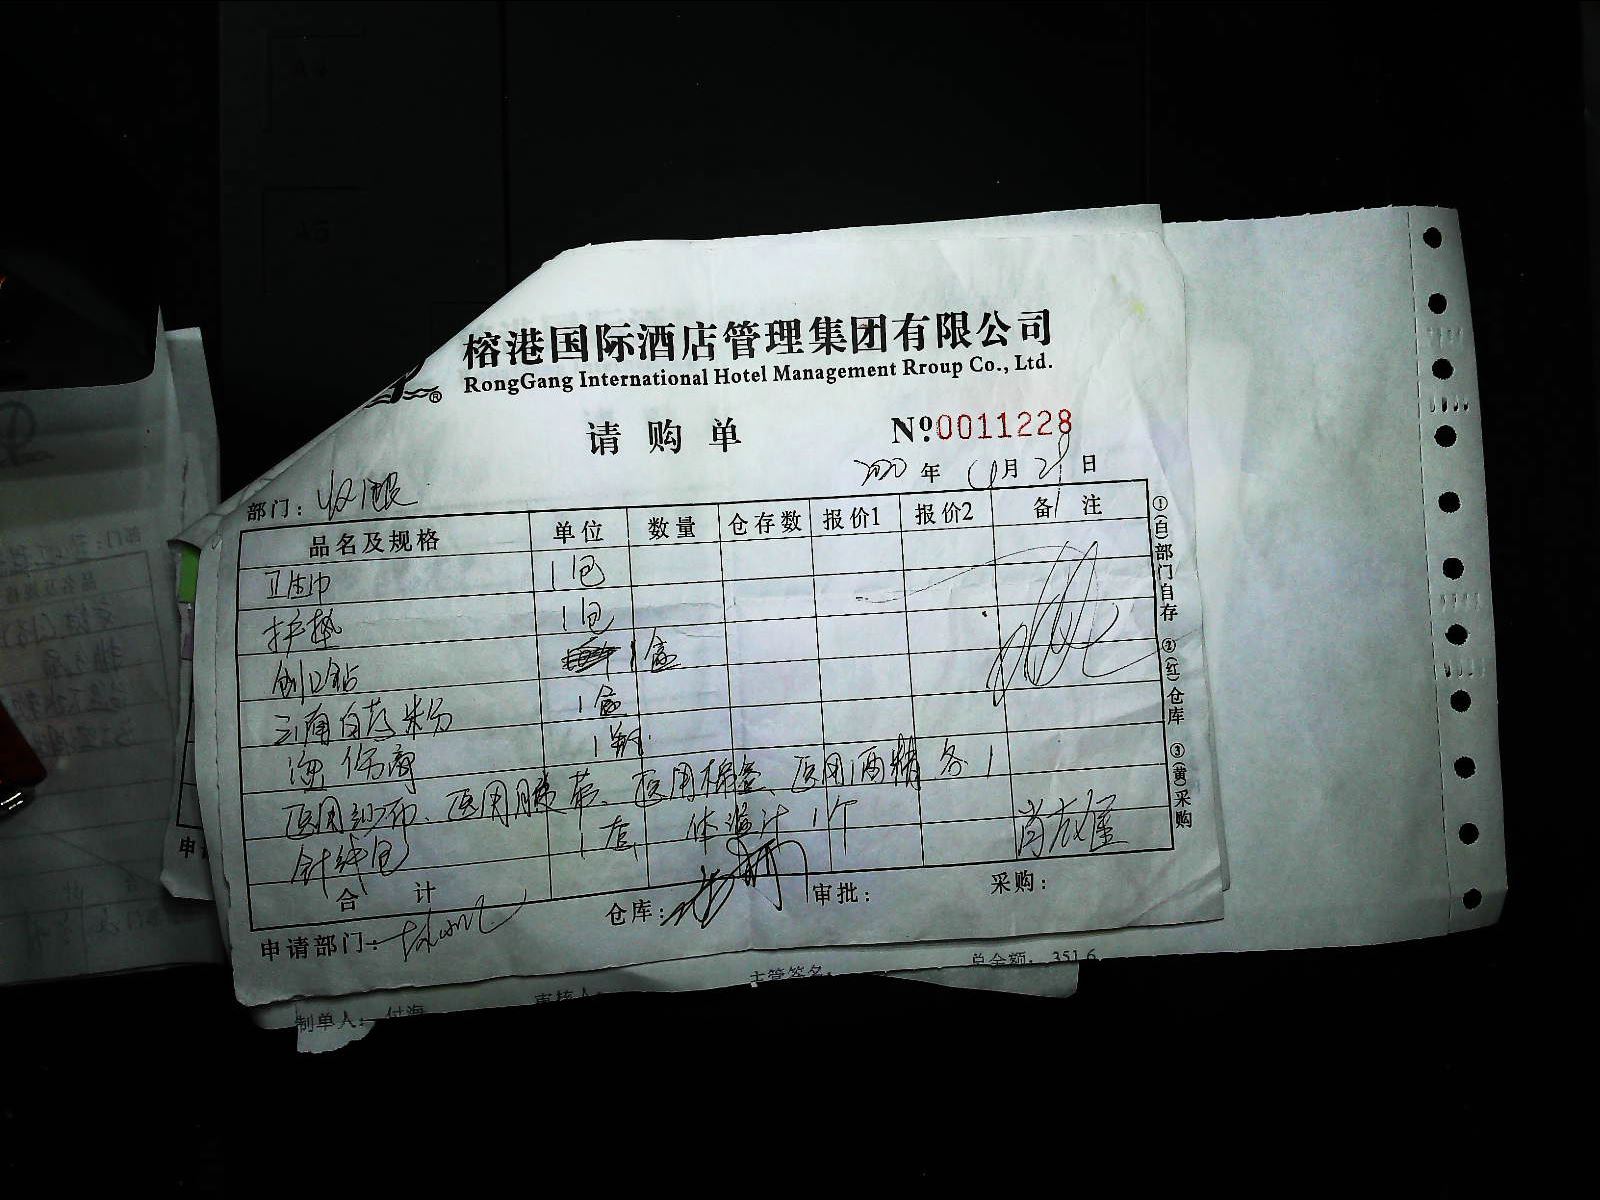 榕港国际酒店管理集团有限公司
RongGang International Hotel Management Rroup Co., Ltd.
请购单 №0011228
2020年 月28日
部门：
品名及规格 单位 数量 仓存数 报价1 报价2 备注
卫生巾 1包
护垫 1包
创口贴 1盒
云南白药粉 1盒
烫伤膏 1
医用纱布、医用胶带、医用棉签、医用酒精各1
针线包 1套 体温计1个
合计
申请部门： 仓库： 审批： 采购：
①(白)部门自存 ②(红)仓库 ③(黄)采购
制单人： 付海 审核人： 主管签名 总金额： 351.6